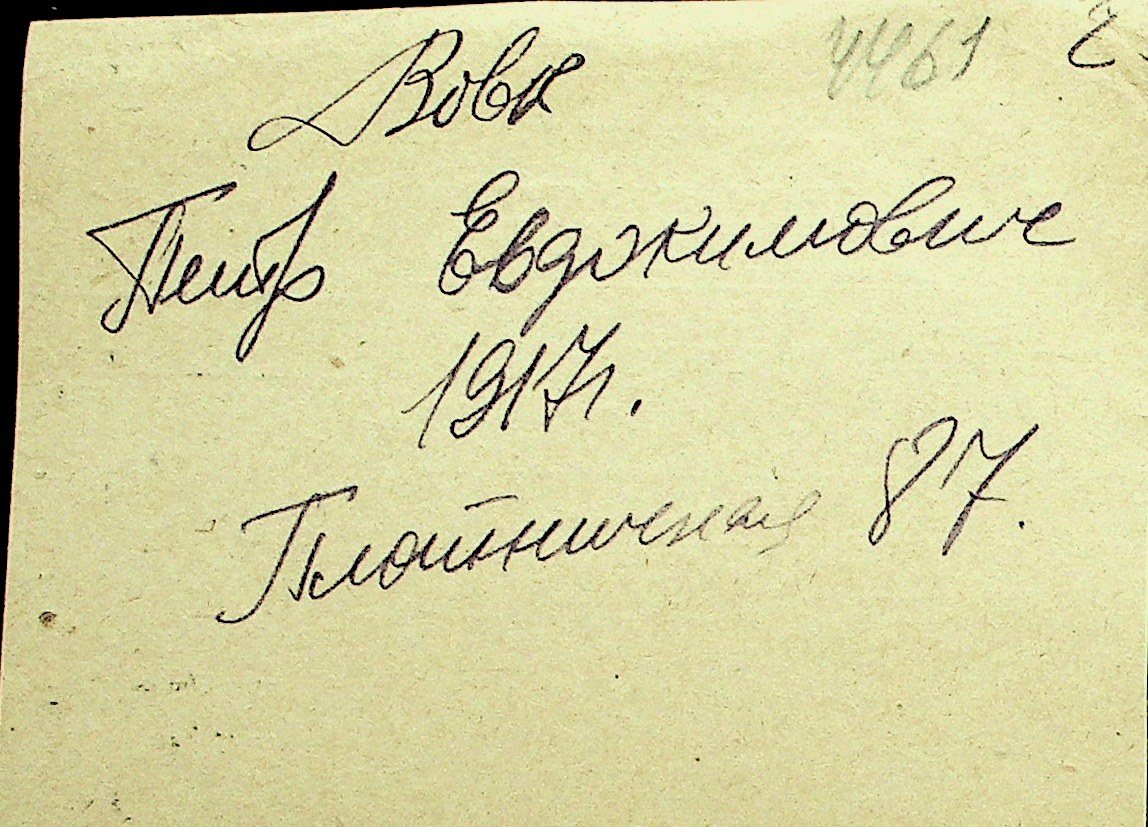 4461 2
Вовк
Петр Евдокимович
1917г.
Плотничская 87.